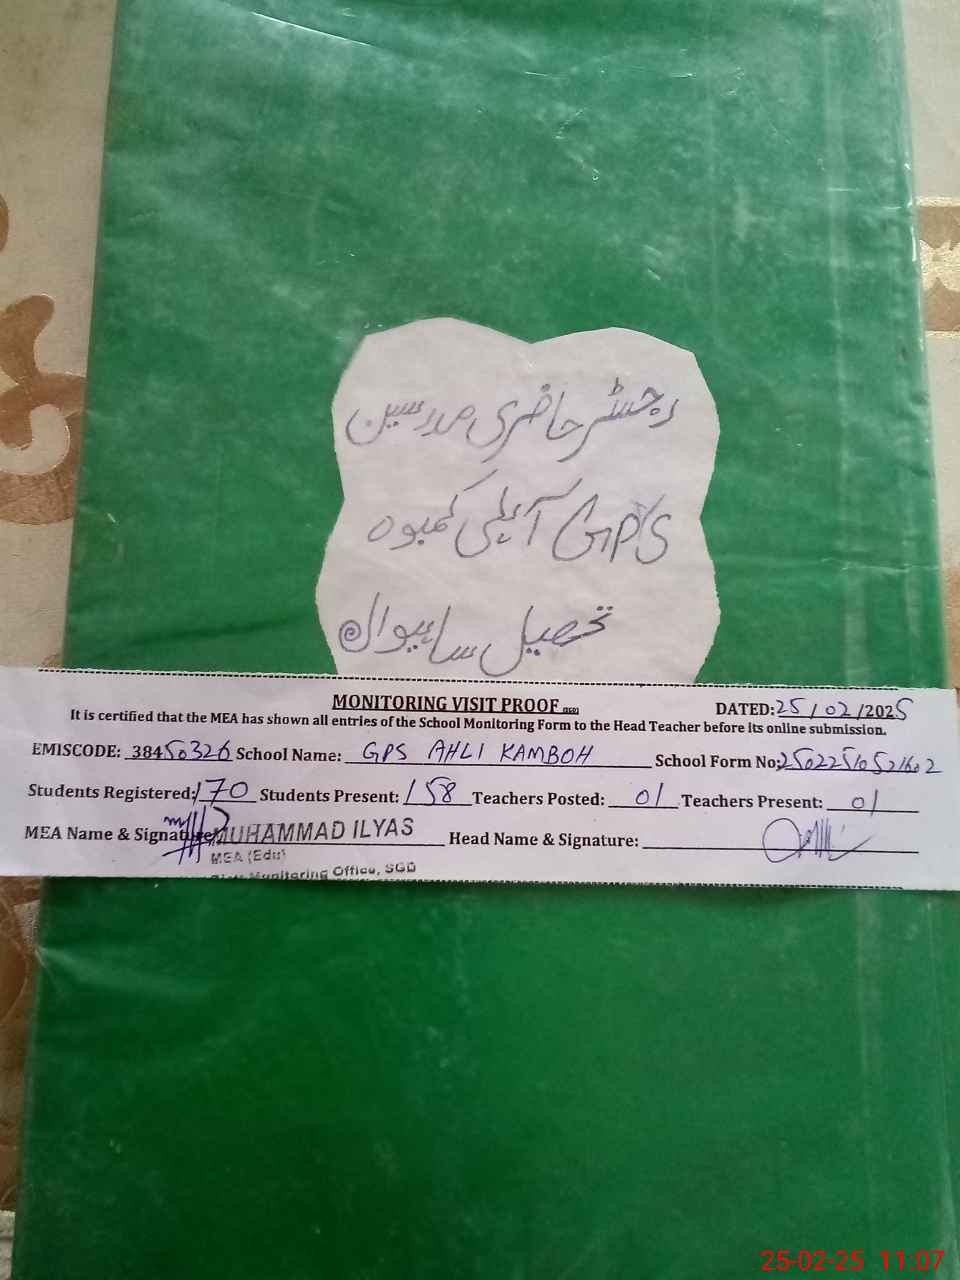 رجسٹر حاضری مدرسین
GPS آہلی کمبوہ
تحصیل ساہیوال
MONITORING VISIT PROOF
DATED: 25/02/2025
It is certified that the MEA has shown all entries of the School Monitoring Form to the Head Teacher before its online submission.
EMISCODE: 38450326 School Name: GPS AHLI KAMBOH School Form No: 25022510521602
Students Registered: 170 Students Present: 158 Teachers Posted: 01 Teachers Present: 01
MEA Name & Signature MUHAMMAD ILYAS Head Name & Signature:
MEA (Edu)
Monitoring Office, SGD
25-02-25 11:07